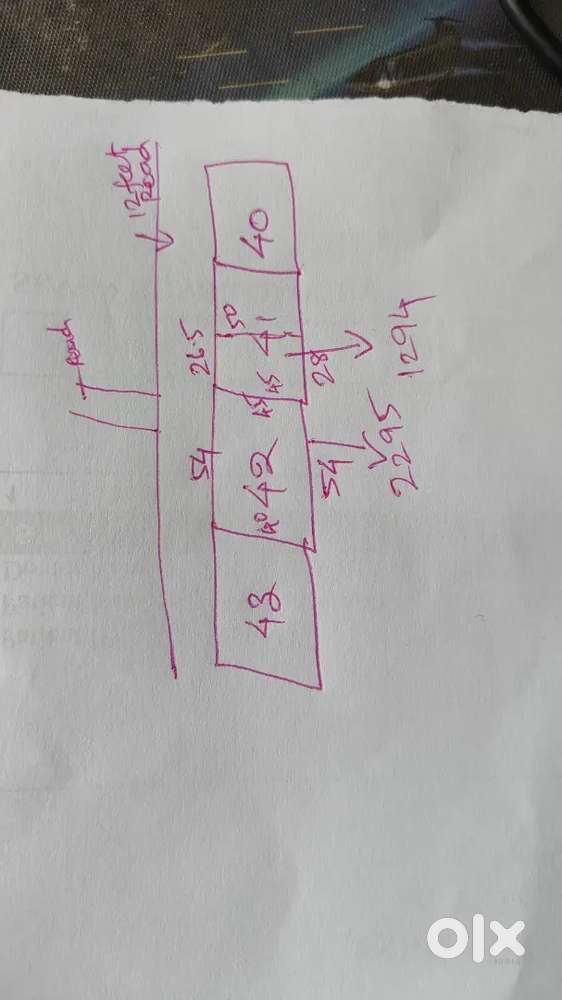 12 feet
Road
T Road
40
26.5
50
41
45
28
1294
54
45
42
40
54
2295
43
olx